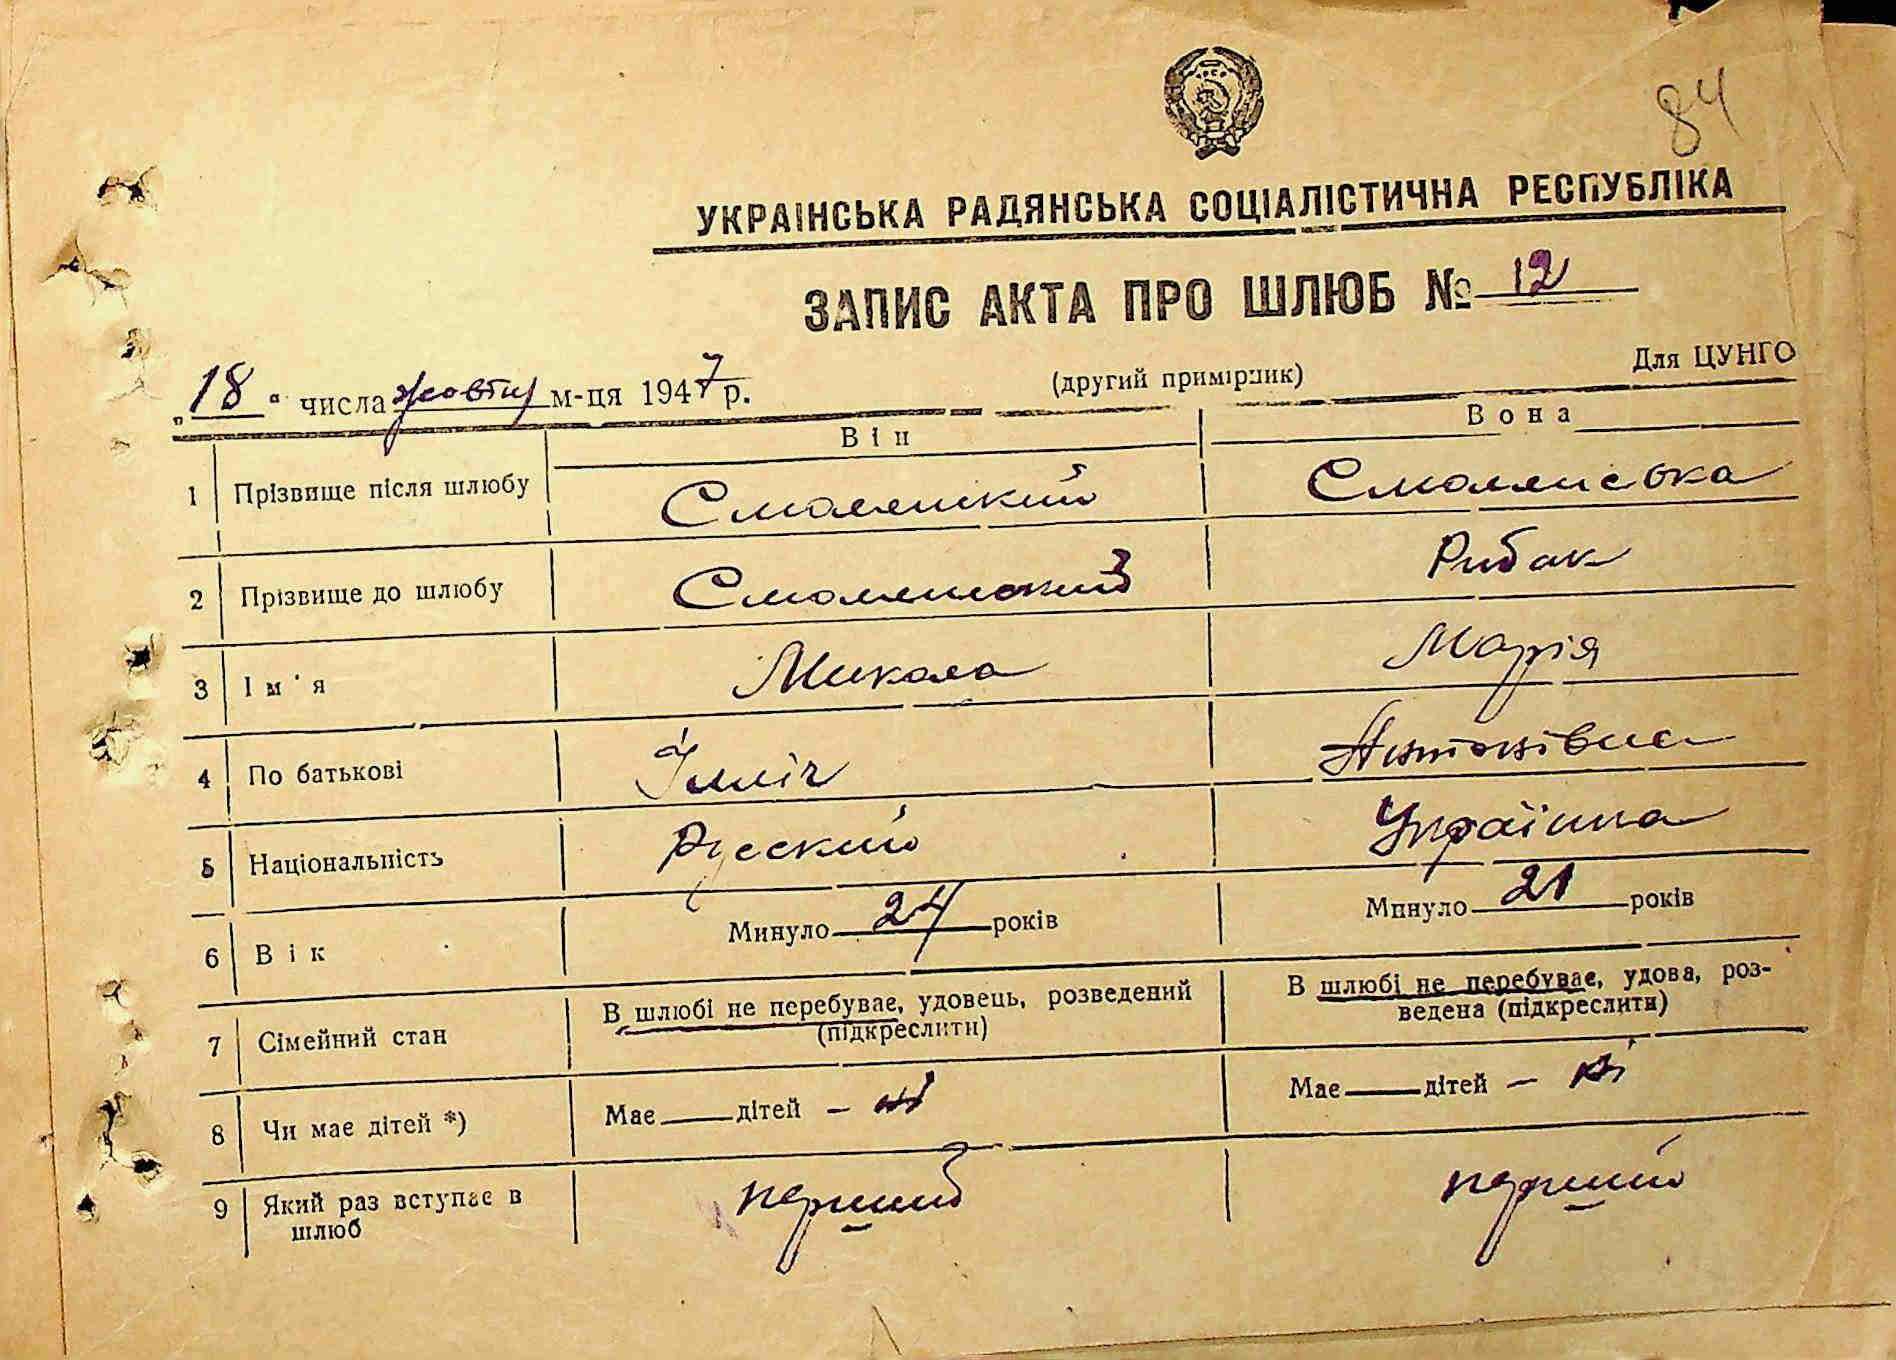 УРСР
84
УКРАЇНСЬКА РАДЯНСЬКА СОЦІАЛІСТИЧНА РЕСПУБЛІКА
ЗАПИС АКТА ПРО ШЛЮБ № 12
„18“ числа жовтня м-ця 1947 р.
(другий примірник)
Для ЦУНГО
Він Вона
1 Прізвище після шлюбу Смоленский Смоленська
2 Прізвище до шлюбу Смоленский Рибак
3 Ім'я Микола Марія
4 По батькові Ілліч Антонівна
5 Національність Русский Українка
6 Вік Минуло 24 років Минуло 21 років
7 Сімейний стан В шлюбі не перебуває, удовець, розведений (підкреслити) В шлюбі не перебуває, удова, роз-
ведена (підкреслити)
8 Чи має дітей *) Має дітей – ні Має дітей – ні
9 Який раз вступає в перший перший
шлюб